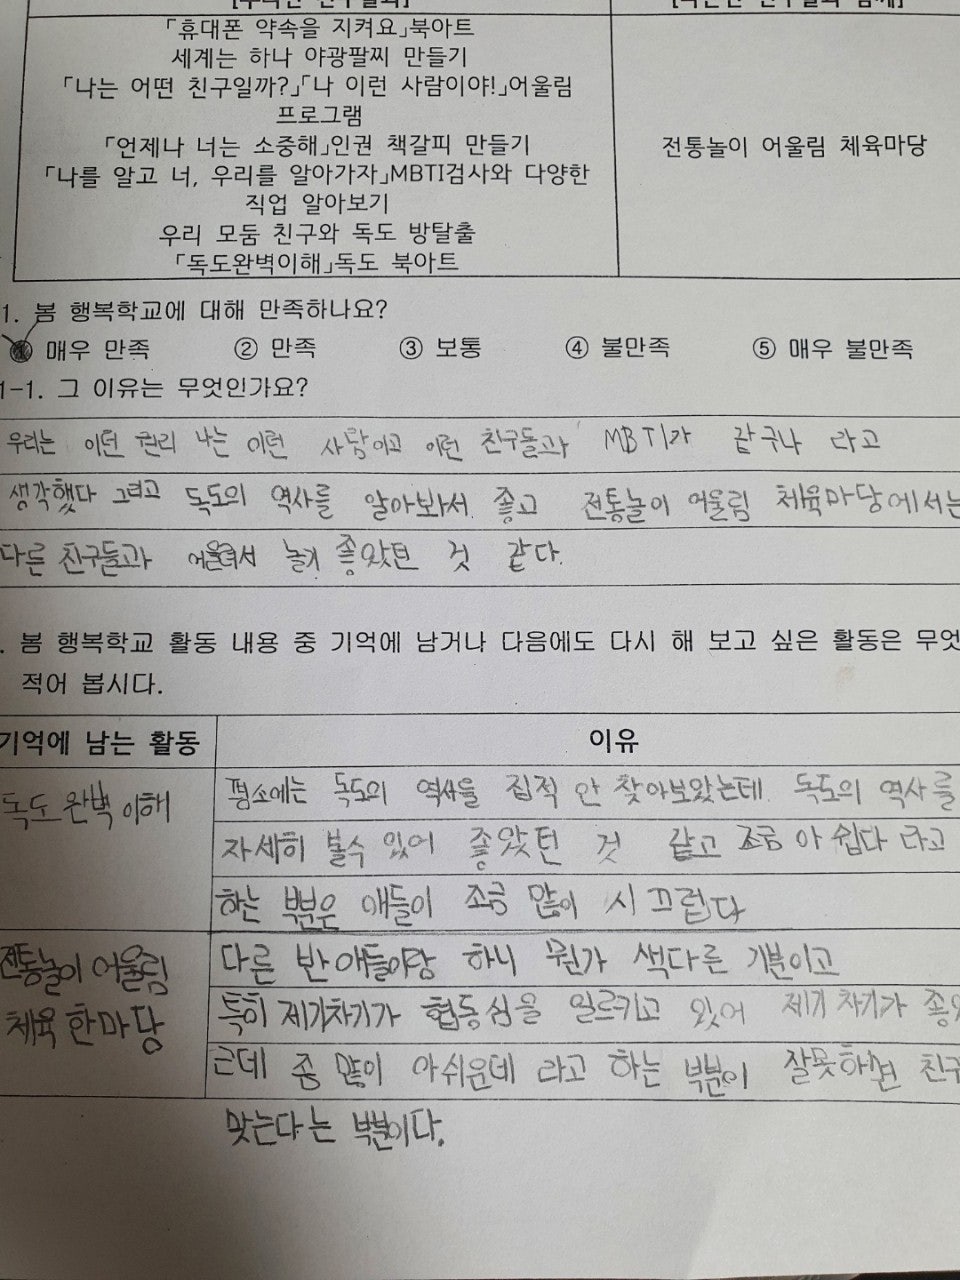 「휴대폰 약속을 지켜요」북아트
세계는 하나 야광팔찌 만들기
「나는 어떤 친구일까?」「나 이런 사람이야!」어울림
프로그램
「언제나 너는 소중해」인권 책갈피 만들기
전통놀이 어울림 체육마당
「나를 알고 너, 우리를 알아가자」MBTI검사와 다양한
직업 알아보기
우리 모둠 친구와 독도 방탈출
「독도완벽이해」독도 북아트
1. 봄 행복학교에 대해 만족하나요?
① 매우 만족 ② 만족 ③ 보통 ④ 불만족 ⑤ 매우 불만족
1-1. 그 이유는 무엇인가요?
우리는 이런 권리 나는 이런 사람이고 이런 친구들과 MBTI가 같구나 라고
생각했다 그리고 독도의 역사를 알아봐서 좋고 전통놀이 어울림 체육마당에서는
다른 친구들과 어울려서 놀기 좋았던 것 같다.
. 봄 행복학교 활동 내용 중 기억에 남거나 다음에도 다시 해 보고 싶은 활동은 무엇
적어 봅시다.
기억에 남는 활동 이유
독도 완벽 이해
평소에는 독도의 역사를 직접 안 찾아보았는데 독도의 역사를
자세히 볼수 있어 좋았던 것 같고 조금 아 쉽다 라고
하는 부분은 애들이 조금 많이 시 끄럽다
전통놀이 어울림
체육 한마당
다른 반 애들이랑 하니 뭔가 색다른 기분이고
특히 제기차기가 협동심을 일르키고 있어 제기 차기가 좋았
근데 좀 많이 아쉬운데 라고 하는 부분이 잘못하면 친구
맞는다는 부분이다.